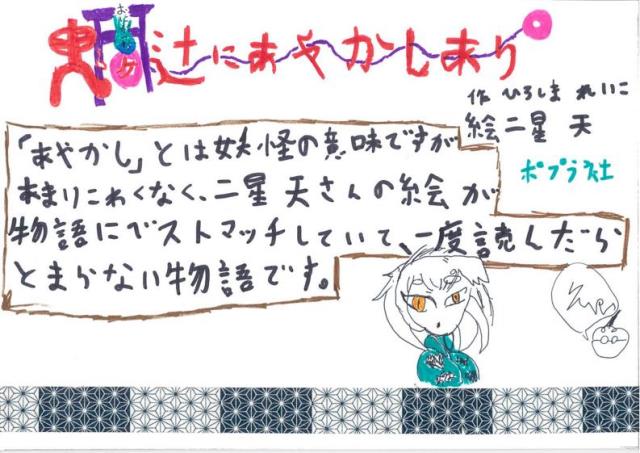 鬼ヶ辻にあやかしあり
作 ひろしま れいこ
絵 二星 天
ポプラ社
「あやかし」とは妖怪の意味ですが
あまりこわくなく、二星 天さんの絵が
物語にベストマッチしていて、一度読んだら
とまらない物語です。